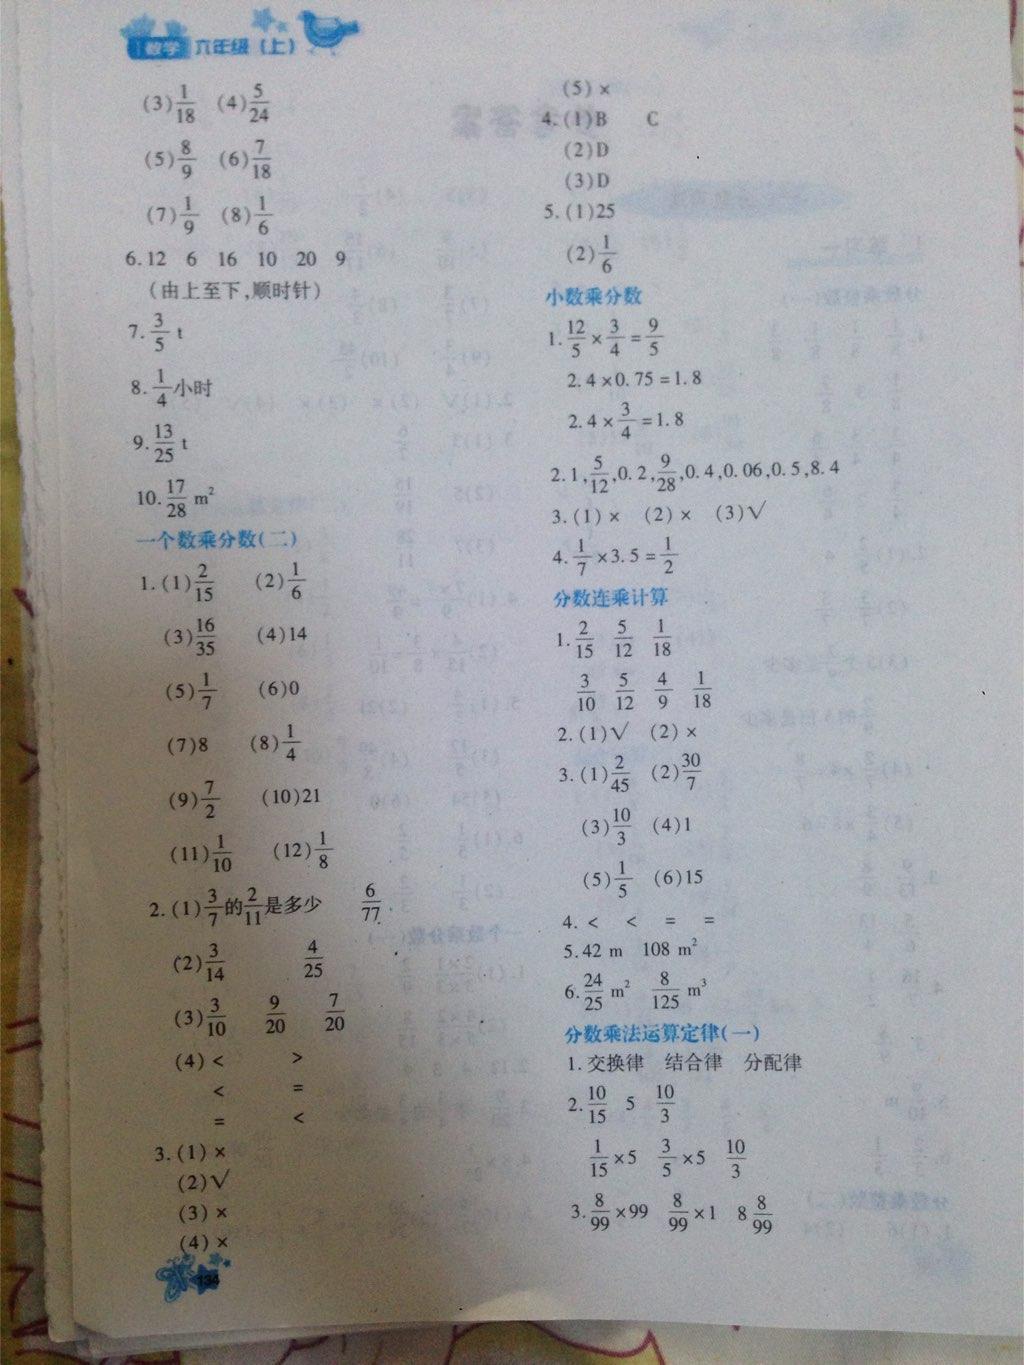 数学 六年级(上)
(3)1/18 (4)5/24
(5)8/9 (6)7/18
(7)1/9 (8)1/6
6.12 6 16 10 20 9
(由上至下,顺时针)
7.3/5 t
8.1/4小时
9.13/25 t
10.17/28 m²
一个数乘分数(二)
1.(1)2/15 (2)1/6
(3)16/35 (4)14
(5)1/7 (6)0
(7)8 (8)1/4
(9)7/2 (10)21
(11)1/10 (12)1/8
2.(1)3/7的2/11是多少 6/77
(2)3/14 4/25
(3)3/10 9/20 7/20
(4)< >
< =
= <
3.(1)×
(2)√
(3)×
(4)×
134
(5)×
4.(1)B C
(2)D
(3)D
5.(1)25
(2)1/6
小数乘分数
1.12/5×3/4=9/5
2.4×0.75=1.8
2.4×3/4=1.8
2.1,5/12,0.2,9/28,0.4,0.06,0.5,8.4
3.(1)× (2)× (3)√
4.1/7×3.5=1/2
分数连乘计算
1.2/15 5/12 1/18
3/10 5/12 4/9 1/18
2.(1)√ (2)×
3.(1)2/45 (2)30/7
(3)10/3 (4)1
(5)1/5 (6)15
4.< < = =
5.42 m 108 m²
6.24/25 m² 8/125 m³
分数乘法运算定律(一)
1.交换律 结合律 分配律
2.10/15 5 10/3
1/15×5 3/5×5 10/3
3.8/99×99 8/99×1 8 8/99